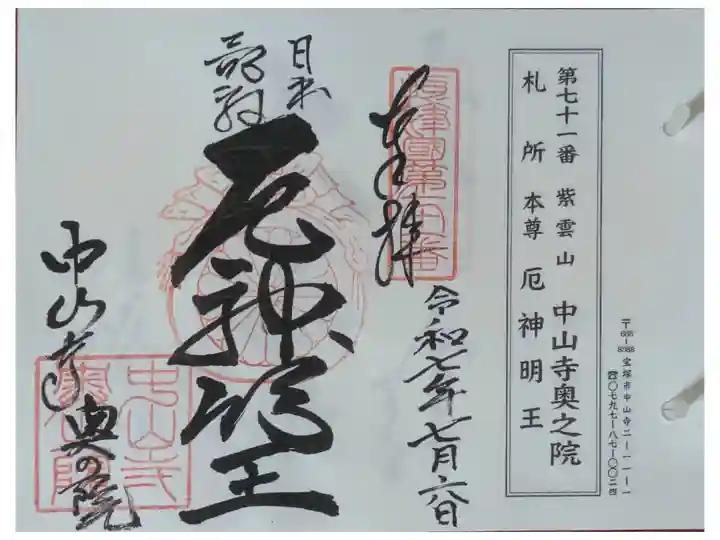 第七十一番 紫雲山 中山寺奥之院
札所本尊 厄神明王
〒665-8588 宝塚市中山寺二-一一-一
☎〇七九七-八七-〇〇二四
奉拝
令和七年七月六日
日本
最初
厄神明王
中山寺
奥の院